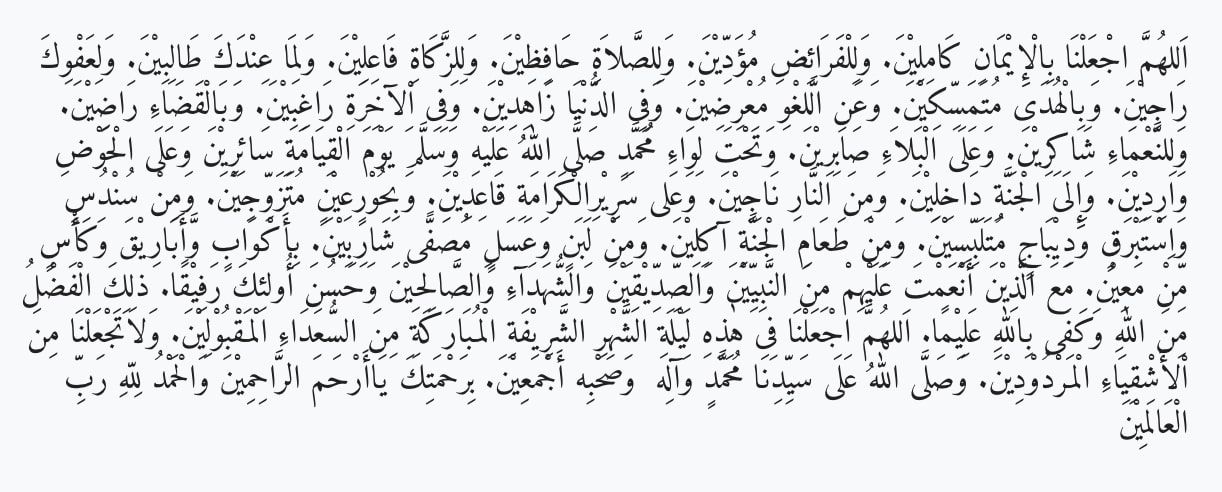 اَللهُمَّ اجْعَلْنَا بِالْإِيْمَانِ كَامِلِيْنَ. وَلِلْفَرَائِضِ مُؤَدِّيْنَ. وَلِلصَّلاَةِ حَافِظِيْنَ. وَلِلزَّكَاةِ فَاعِلِيْنَ. وَلِمَا عِنْدَكَ طَالِبِيْنَ. وَلِعَفْوِكَ
رَاجِيْنَ. وَبِالْهُدَى مُتَمَسِّكِيْنَ. وَعَنِ الَّلغْوِ مُعْرِضِيْنَ. وَفِى الدُّنْيَا زَاهِدِيْنَ. وَفِى اْلآخِرَةِ رَاغِبِيْنَ. وَبِالْقَضَاءِ رَاضِيْنَ.
وَلِلنَّعْمَاءِ شَاكِرِيْنَ. وَعَلَى الْبَلاَءِ صَابِرِيْنَ. وَتَحْتَ لِوَاءِ مُحَمَّدٍ صَلَّى اللهُ عَلَيْهِ وَسَلَّمَ يَوْمَ الْقِيَامَةِ سَائِرِيْنَ وَعَلَى الْحَوْضِ
وَارِدِيْنَ. وَإِلَى الْجَنَّةِ دَاخِلِيْنَ. وَمِنَ النَّارِ نَاجِيْنَ. وَعَلى سَرِيْرِالْكَرَامَةِ قَاعِدِيْنَ. وَبِحُوْرٍعِيْنٍ مُتَزَوِّجِيْنَ. وَمِنْ سُنْدُسٍ
وَاِسْتَبْرَقٍ وَدِيْبَاجٍ مُتَلَبِّسِيْنَ. وَمِنْ طَعَامِ الْجَنَّةِ آكِلِيْنَ. وَمِنْ لَبَنٍ وَعَسَلٍ مُصَفًّى شَارِبِيْنَ. بِأَكْوَابٍ وَّأَبَارِيْقَ وَكَأْسٍ
مِّنْ مَعِيْن. مَعَ الَّذِيْنَ أَنْعَمْتَ عَلَيْهِمْ مِنَ النَّبِيِّيْنَ وَالصِّدِّيْقِيْنَ وَالشُّهَدَآءِ وَالصَّالِحِيْنَ وَحَسُنَ أُولئِكَ رَفِيْقًا. ذلِكَ الْفَضْلُ
مِنَ اللهِ وَكَفَى بِاللهِ عَلِيْمًا. اَللهُمَّ اجْعَلْنَا فِى هٰذِهِ لَيْلَةِ الشَّهْرِ الشَّرِيْفَةِ الْمُبَارَكَةِ مِنَ السُّعَدَاءِ الْمَقْبُوْلِيْنَ. وَلاَتَجْعَلْنَا مِنَ
اْلأَشْقِيَاءِ الْمَرْدُوْدِيْنَ. وَصَلَّى اللهُ عَلَى سَيِّدِنَا مُحَمَّدٍ وَآلِه وَصَحْبِه أَجْمَعِيْنَ. بِرَحْمَتِكَ يَاأَرْحَمَ الرَّاحِمِيْنَ وَالْحَمْدُ لِلّٰهِ رَبِّ
الْعَالَمِيْنَ